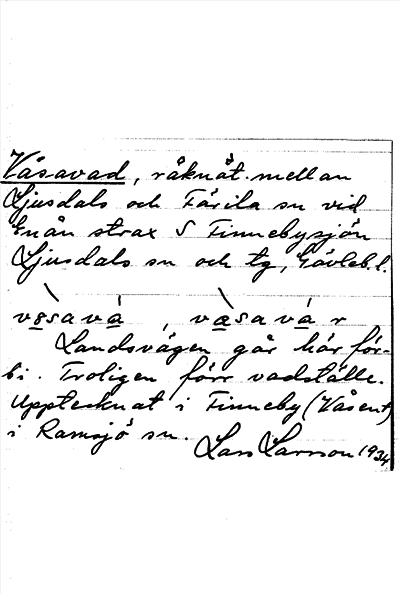 Våsavad, råknåt. mellan
Ljusdals och Färila sn vid
Enån strax S Finnebysjön
Ljusdals sn och tg, Gävlebl.
vɵsavá , vasavár
Landsvägen går här för-
bi. Troligen förr vadställe.
Upptecknat i Finneby (Våsent)
i Ramsjö sn.
Lars Larsson 1934